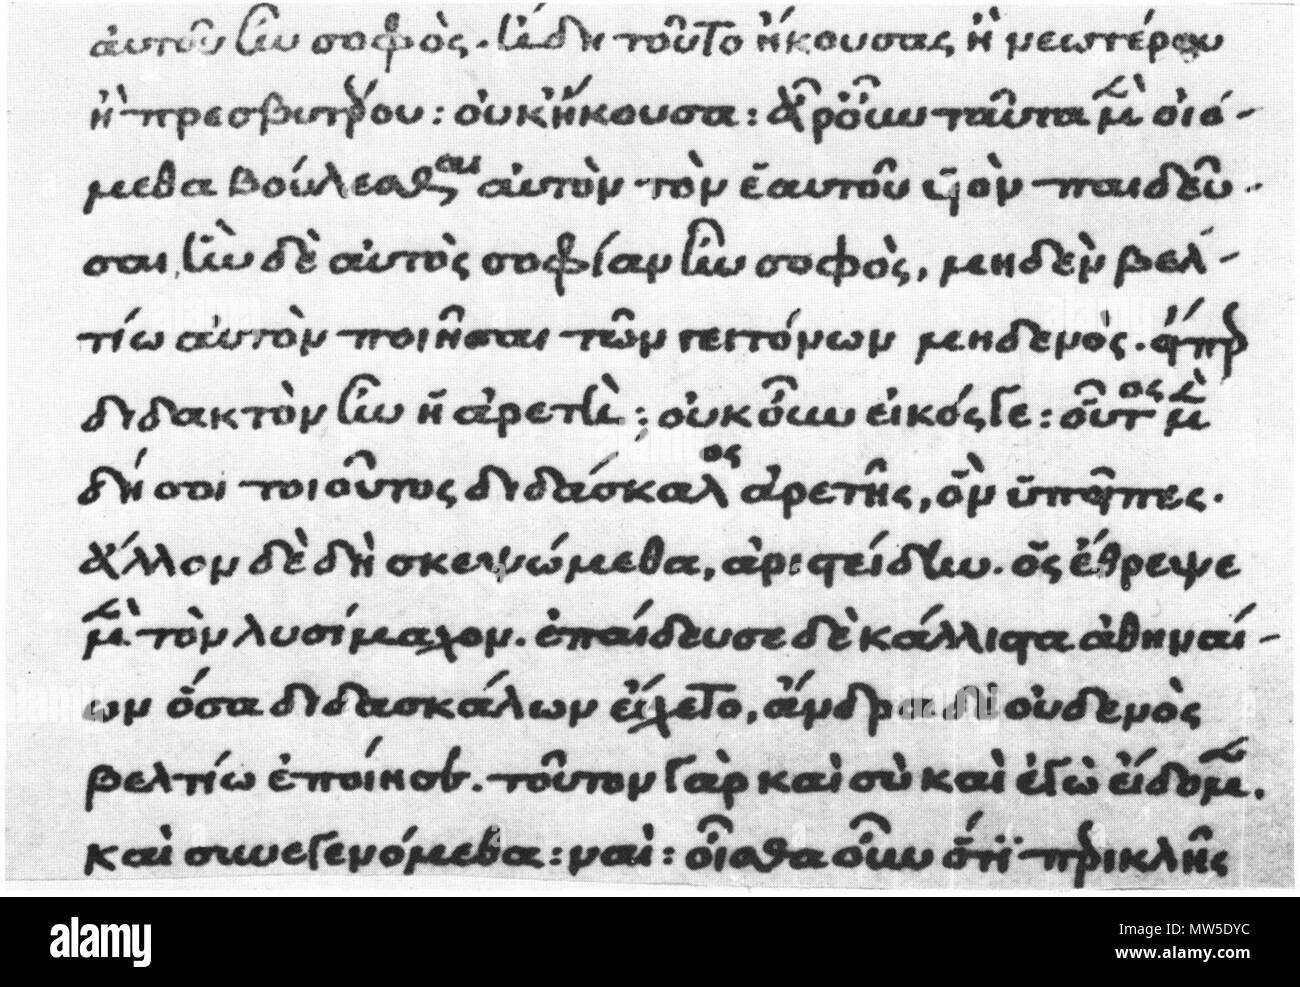 αὐτοῦ ἦν σοφὸς. ἤδη τοῦτο ἤκουσας ἢ νεωτέρου
ἢ πρεσβυτέρου : οὐκ ἤκουσα : ἆρ' οὖν ταῦτα μὲν οἰό-
μεθα βούλεσθαι αὐτὸν τὸν ἑαυτοῦ υἱὸν παιδεῦ-
σαι, ἣν δὲ αὐτὸς σοφίαν ἦν σοφὸς, μηδὲν βελ-
τίω αὐτὸν ποιῆσαι τῶν γειτόνων μηδενός. εἴπερ
διδακτὸν ἦν ἡ ἀρετὴ : οὐκ οὖν εἰκός γε : οὗτος μὲν
δή σοι τοιοῦτος διδάσκαλος ἀρετῆς, ὃν ὑπεῖπες.
ἄλλον δὲ δὴ σκεψώμεθα, ἀριστείδην. ὃς ἔθρεψε
μὲν τὸν λυσίμαχον. ἐπαίδευσε δὲ κάλλιστα ἀθηναί-
ων ὅσα διδασκάλων εἴχετο, ἄνδρα δὲ οὐδενὸς
βελτίω ἐποίησεν. τοῦτον γὰρ καὶ σὺ καὶ ἐγὼ εἴδομεν.
καὶ συνεγενόμεθα : ναί : οἶσθα οὖν ὅτι περικλῆς
alamy
Image ID: MW5DYC
www.alamy.com